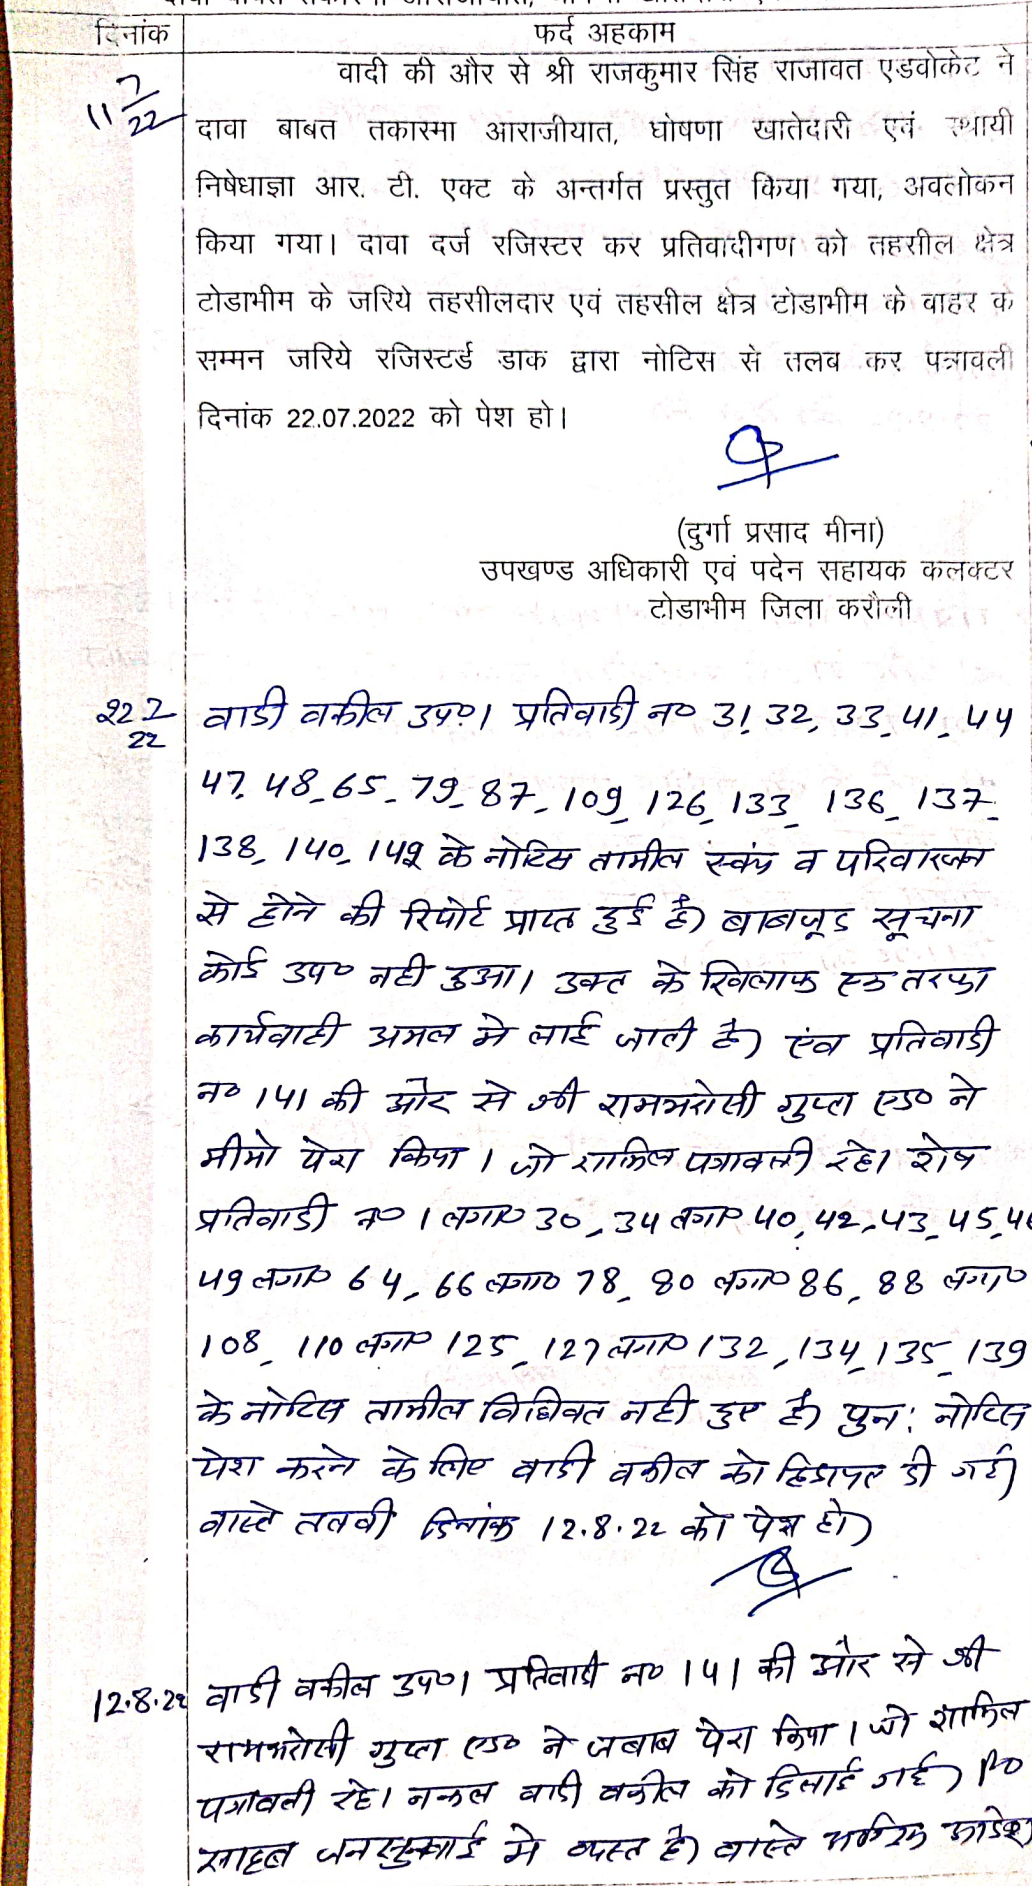 दिनांक फर्द अहकाम
11/7/22 वादी की और से श्री राजकुमार सिंह राजावत एडवोकेट ने
दावा बाबत तकास्मा आराजीयात, घोषणा खातेदारी एवं स्थायी
निषेधाज्ञा आर. टी. एक्ट के अन्तर्गत प्रस्तुत किया गया, अवलोकन
किया गया। दावा दर्ज रजिस्टर कर प्रतिवादीगण को तहसील क्षेत्र
टोडाभीम के जरिये तहसीलदार एवं तहसील क्षेत्र टोडाभीम के वाहर के
सम्मन जरिये रजिस्टर्ड डाक द्वारा नोटिस से तलब कर पत्रावली
दिनांक 22.07.2022 को पेश हो।
(दुर्गा प्रसाद मीना)
उपखण्ड अधिकारी एवं पदेन सहायक कलक्टर
टोडाभीम जिला करौली
22/7/22 वादी वकील उप०। प्रतिवादी न० 31, 32, 33, 41, 44
47, 48, 65, 79, 87, 109, 126, 133, 136, 137,
138, 140, 142 के नोटिस तामील स्वंय व परिवारजन
से होने की रिपोर्ट प्राप्त हुई है। बाबजूद सूचना
कोई उप० नही हुआ। उक्त के खिलाफ एक तरफा
कार्यवाही अमल मे लाई जाती है। एंव प्रतिवादी
न० 141 की ओर से श्री रामभरोसी गुप्ता एड० ने
मीमो पेश किया। जो शामिल पत्रावली रहे। शेष
प्रतिवादी न० 1 लगा० 30, 34 लगा० 40, 42, 43, 45, 46
49 लगा० 64, 66 लगा० 78, 80 लगा० 86, 88 लगा०
108, 110 लगा० 125, 127 लगा० 132, 134, 135, 139
के नोटिस तामील विधिवत नही हुए है। पुन: नोटिस
पेश करने के लिए वादी वकील को हिदायत दी गई।
वास्ते तलवी दिनांक 12.8.22 को पेश हो।
12.8.22 वादी वकील उप०। प्रतिवादी न० 141 की ओर से श्री
रामभरोसी गुप्ता एड० ने जबाब पेश किया। जो शामिल
पत्रावली रहे। नकल वादी वकील को दिलाई गई। P०
साहब जनसुनवाई मे व्यस्त है। वास्ते आदेश